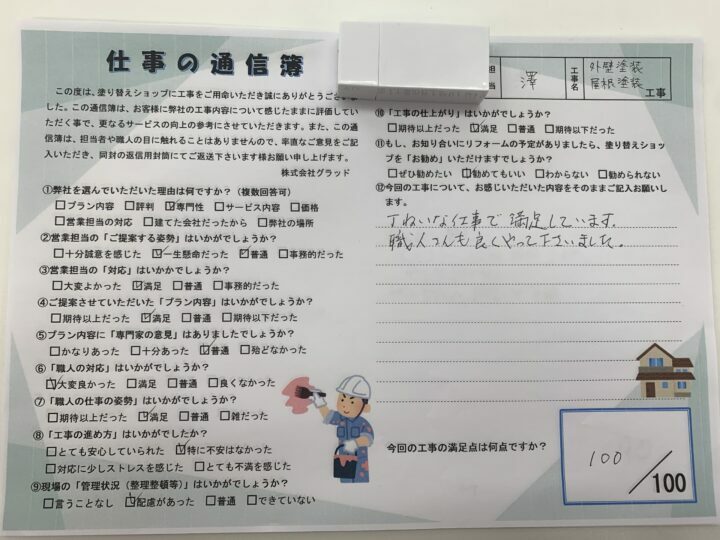 仕事の通信簿
この度は、塗り替えショップに工事をご用命いただき誠にありがとうございま
した。この通信簿は、お客様に弊社の工事内容について感じたままに評価してい
ただく事で、更なるサービスの向上の参考にさせていただきます。また、この通
信簿は、担当者や職人の目に触れることはありませんので、率直なご意見をご記
入いただき、同封の返信用封筒にてご返送下さいます様お願い申し上げます。
株式会社グラッド
①弊社を選んでいただいた理由は何ですか?(複数回答可)
□プラン内容 □評判 ☑専門性 □サービス内容 □価格
□営業担当の対応 □建てた会社だったから □弊社の場所
②営業担当の「ご提案する姿勢」はいかがでしょうか?
□十分誠意を感じた ☑一生懸命だった ☑普通 □事務的だった
③営業担当の「対応」はいかがでしょうか?
□大変よかった ☑満足 □普通 □事務的だった
④ご提案させていただいた「プラン内容」はいかがでしょうか?
□期待以上だった ☑満足 □普通 □期待以下だった
⑤プラン内容に「専門家の意見」はありましたでしょうか?
□かなりあった □十分あった ☑普通 □殆どなかった
⑥「職人の対応」はいかがでしょうか?
☑大変良かった □満足 □普通 □良くなかった
⑦「職人の仕事の姿勢」はいかがでしょうか?
□期待以上だった ☑満足 □普通 □雑だった
⑧「工事の進め方」はいかがでしたか?
□とても安心していられた ☑特に不安はなかった
□対応に少しストレスを感じた □とても不満を感じた
⑨現場の「管理状況(整理整頓等)」はいかがでしょうか?
□言うことなし ☑配慮があった □普通 □できていない
担当
澤
工事名
外壁塗装
屋根塗装
工事
⑩「工事の仕上がり」はいかがでしょうか?
□期待以上だった ☑満足 □普通 □期待以下だった
⑪もし、お知り合いにリフォームの予定がありましたら、塗り替えショッ
プを「お勧め」いただけますでしょうか?
□ぜひ勧めたい ☑勧めてもいい □わからない □勧められない
⑫今回の工事について、お感じいただいた内容をそのままご記入お願いし
ます。
丁ねいな仕事で満足しています。
職人さんも良くやって下さいました。
今回の工事の満足点は何点ですか?
100/100